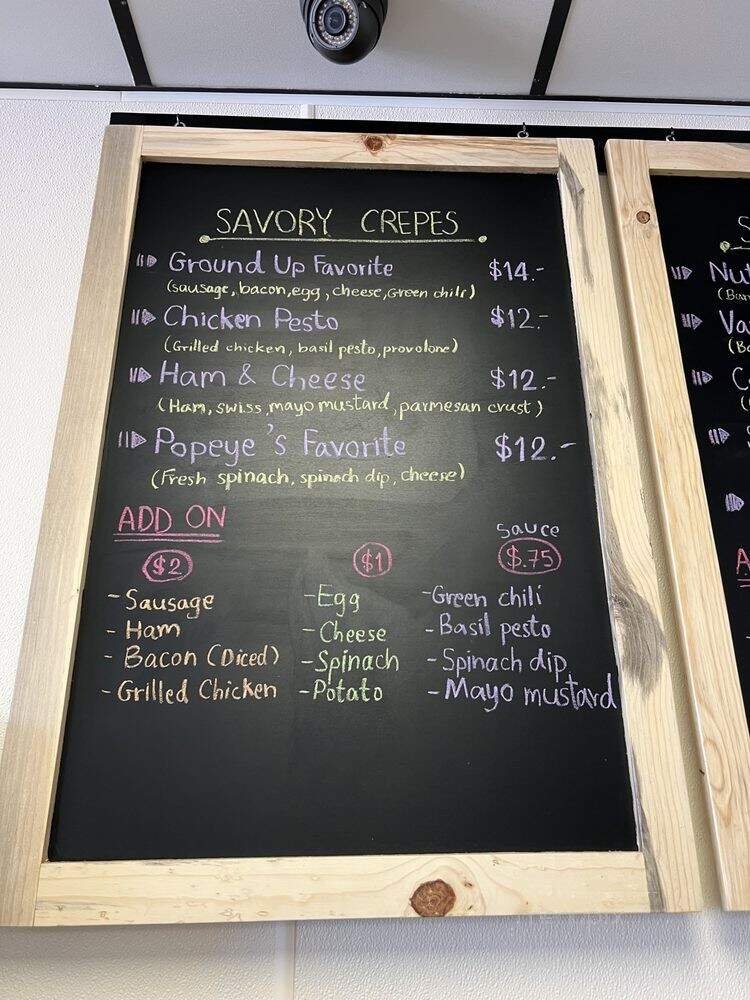 SAVORY CREPES
Ground Up Favorite $14.-
(sausage, bacon, egg, cheese, Green chili)
Chicken Pesto $12.-
(Grilled chicken, basil pesto, provolone)
Ham & Cheese $12.-
(Ham, swiss, mayo mustard, parmesan crust)
Popeye's Favorite $12.-
(Fresh spinach, spinach dip, cheese)
ADD ON
$2
- Sausage
- Ham
- Bacon (Diced)
- Grilled Chicken
$1
- Egg
- Cheese
- Spinach
- Potato
sauce
$.75
- Green chili
- Basil pesto
- Spinach dip
- Mayo mustard